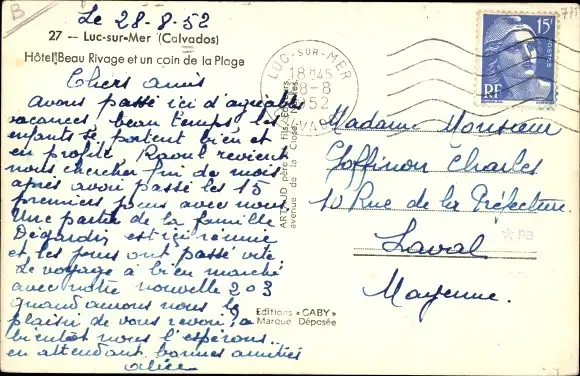 Le 28-8-52
27 — Luc-sur-Mer (Calvados)
Hôtel Beau Rivage et un coin de la Plage
Chers amis
avons passé ici d'agréables
vacances, beau temps, les
enfants se portent bien et
en profite. Raoul revient
nous chercher fin de mois
après avoir passé les 15
premiers jours avec nous
Une partie de la famille
Dégardin est ici réunie
et les jours ont passé vite
Le voyage a bien marché
avec notre nouvelle 203
Quand aurons nous le
plaisir de vous revoir, à
bientôt nous l'espérons..
en attendant bonnes amitiés
alice
ARTAUD père et fils, Editeurs
avenue de la Cité
Editions « GABY »
Marque Déposée
LUC-SUR-MER
18H45
28-8
1952
CALVADOS
15F
POSTES
RF
Madame Monsieur
Goffinon Charles
10 Rue de la Préfecture
Laval
Mayenne.
B
*PB